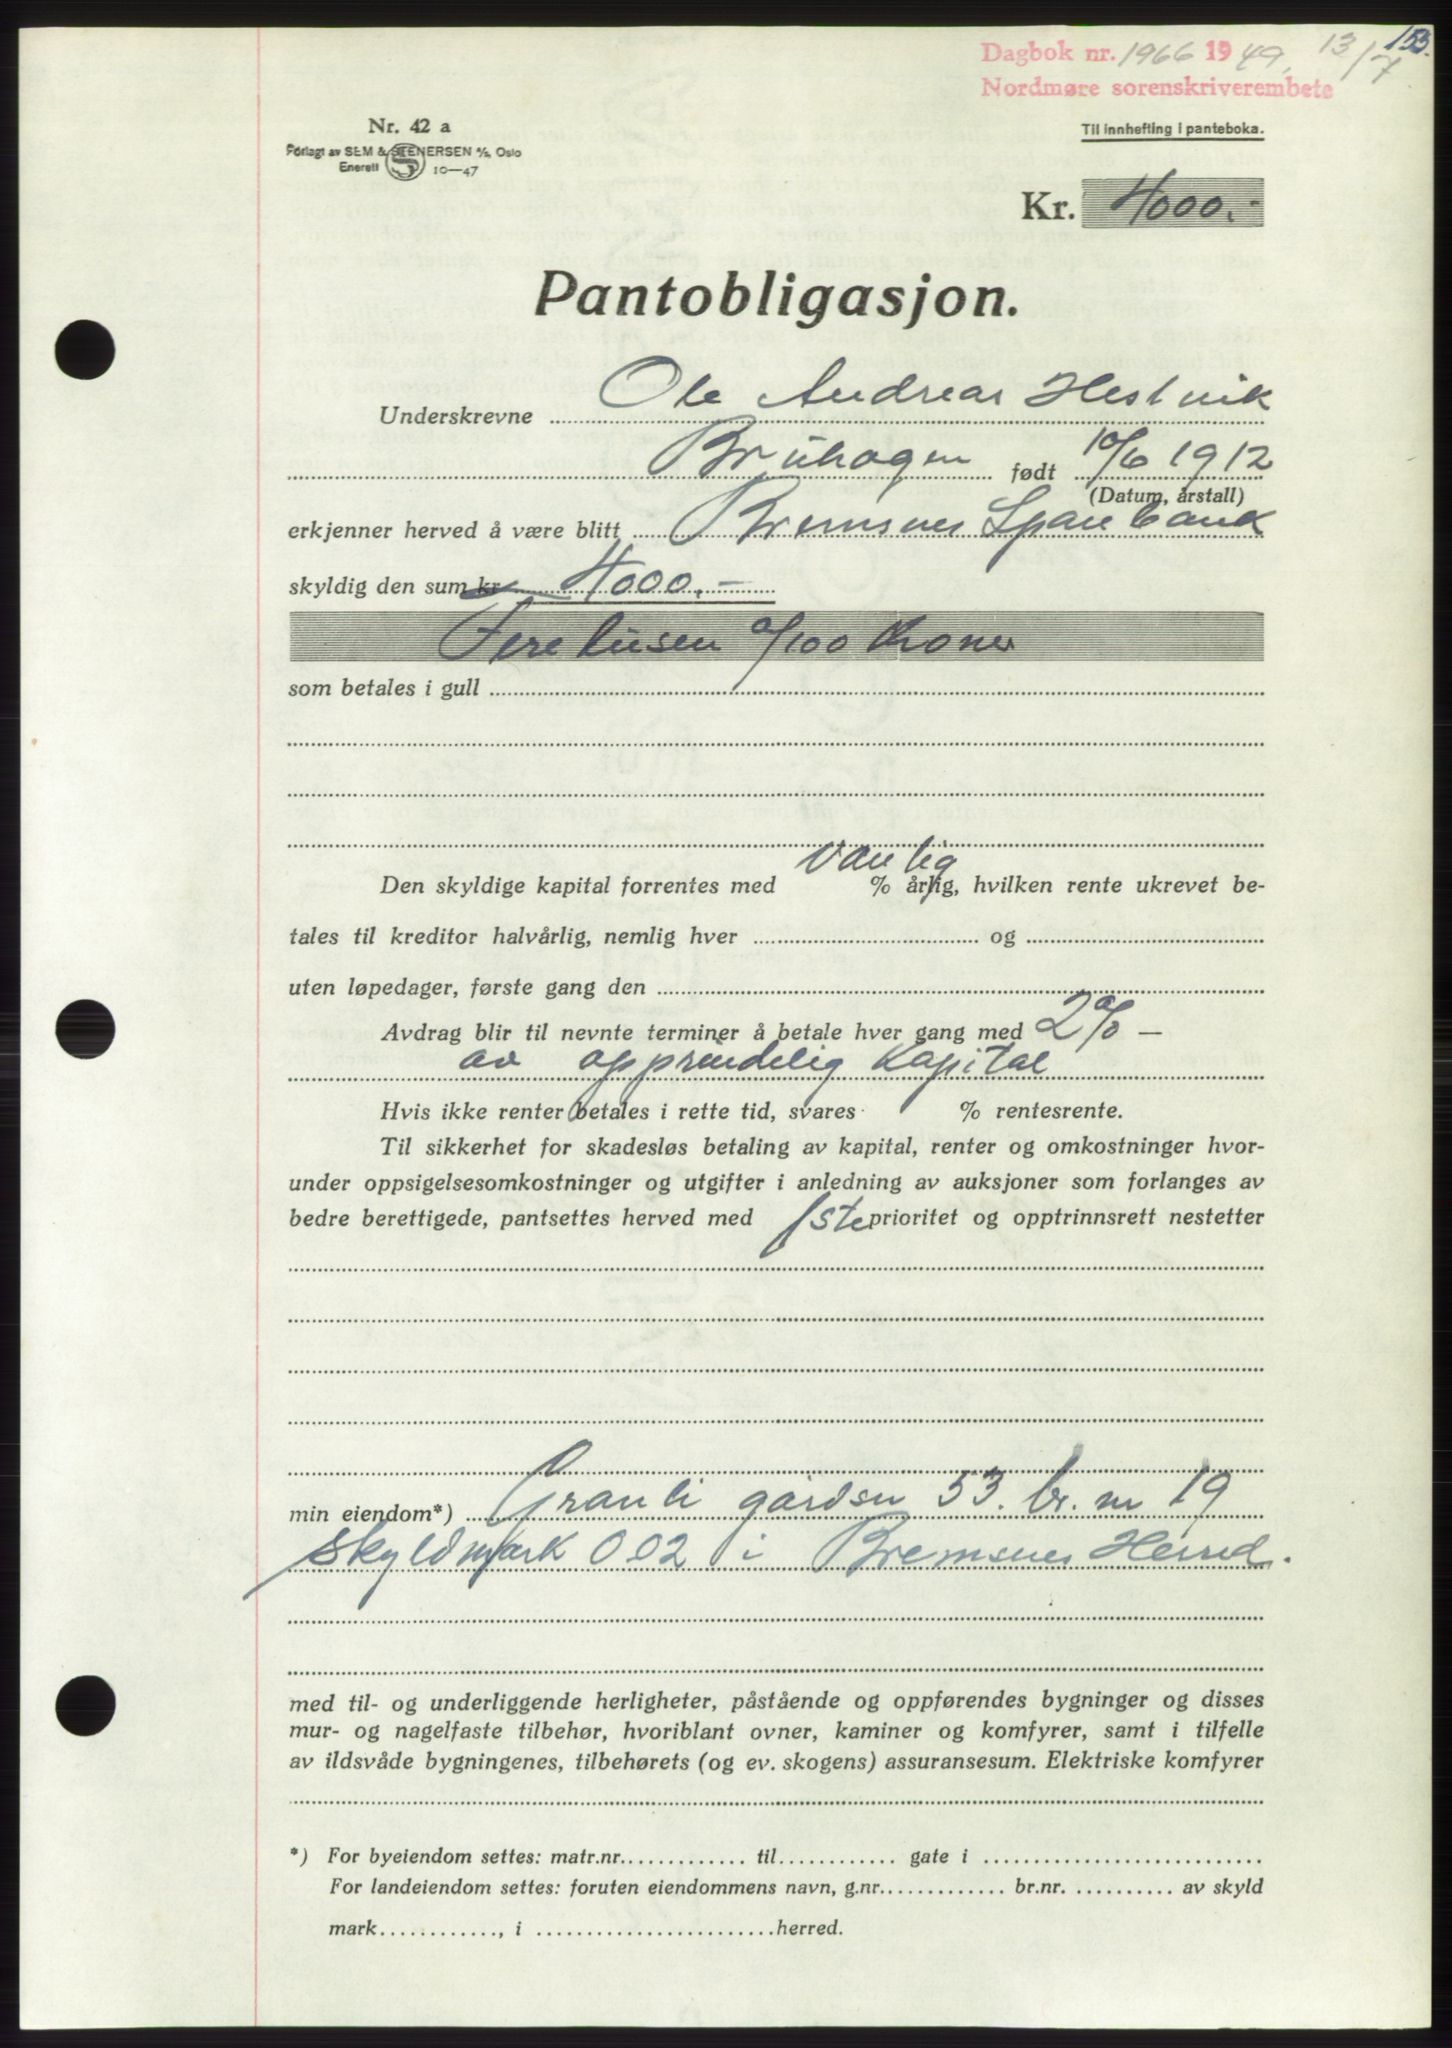 153.
Dagbok nr. 1966 1949, 13/7
Nordmøre sorenskriverembete
Nr. 42 a
Forlagt av SEM & STENERSEN A/S, Oslo
Enerett 10—47
Til innhefting i panteboka.
Kr. 4000.-
Pantobligasjon.
Underskrevne Ole Andreas Hestvik
Bruhagen født 10/6 1912
(Datum, årstall)
erkjenner herved å være blitt Bremsnes Sparebank
skyldig den sum kr. 4000.-
Firetusen 0/100 Kroner
som betales i gull
Den skyldige kapital forrentes med vanlig % årlig, hvilken rente ukrevet be-
tales til kreditor halvårlig, nemlig hver og
uten løpedager, første gang den
Avdrag blir til nevnte terminer å betale hver gang med 2% —
av opprindelig Kapital
Hvis ikke renter betales i rette tid, svares % rentesrente.
Til sikkerhet for skadesløs betaling av kapital, renter og omkostninger hvor-
under oppsigelsesomkostninger og utgifter i anledning av auksjoner som forlanges av
bedre berettigede, pantsettes herved med 1ste prioritet og opptrinnsrett nestetter
min eiendom*) Granli gårdsn 53. br. nr 19
Skyldmark 0.02 i Bremsnes Herred.
med til- og underliggende herligheter, påstående og oppførendes bygninger og disses
mur- og nagelfaste tilbehør, hvoriblant ovner, kaminer og komfyrer, samt i tilfelle
av ildsvåde bygningenes, tilbehørets (og ev. skogens) assuransesum. Elektriske komfyrer
*) For byeiendom settes: matr.nr. til gate i
For landeiendom settes: foruten eiendommens navn, g.nr. br.nr. av skyld
mark, i herred.